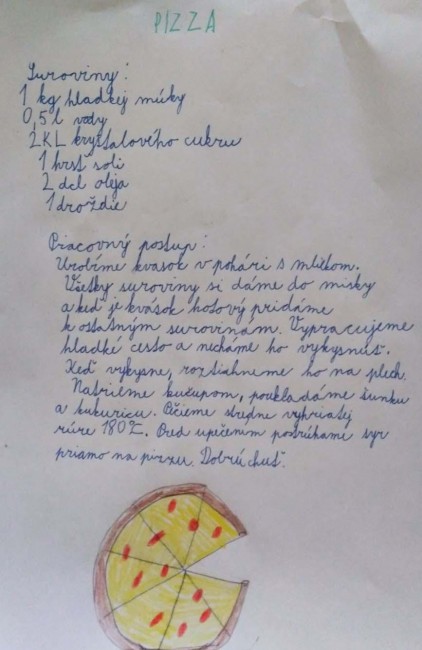 PIZZA
Suroviny:
1 kg hladkej múky
0,5 l vody
2 KL kryštalového cukru
1 hrsť soli
2 dcl oleja
1 droždie
Pracovný postup:
Urobíme kvások v pohári s mliekom.
Všetky suroviny si dáme do misky
a keď je kvások hotový pridáme
k ostatným surovinám. Vypracujeme
hladké cesto a necháme ho vykysnúť.
Keď vykysne, roztiahneme ho na plech.
Natrieme kečupom, poukladáme šunku
a kukuricu. Pečieme stredne vyhriatej
rúre 180°C. Pred upečením postrúhame syr
priamo na pizzu. Dobrú chuť.